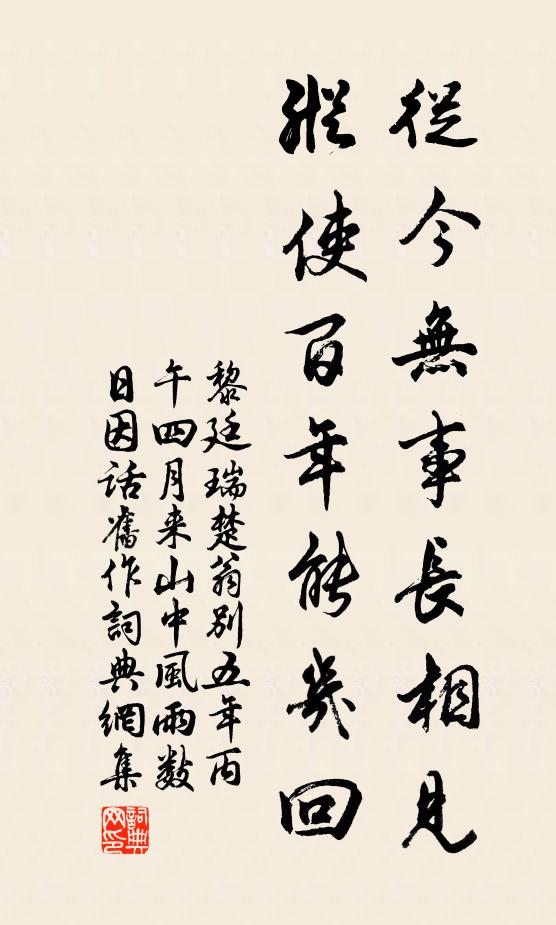 從今無事長相見
縱使百年能幾回
黎廷瑞楚翁別五年丙
午四月来山中風雨数
日因話舊作詞典網集
詞典
网印